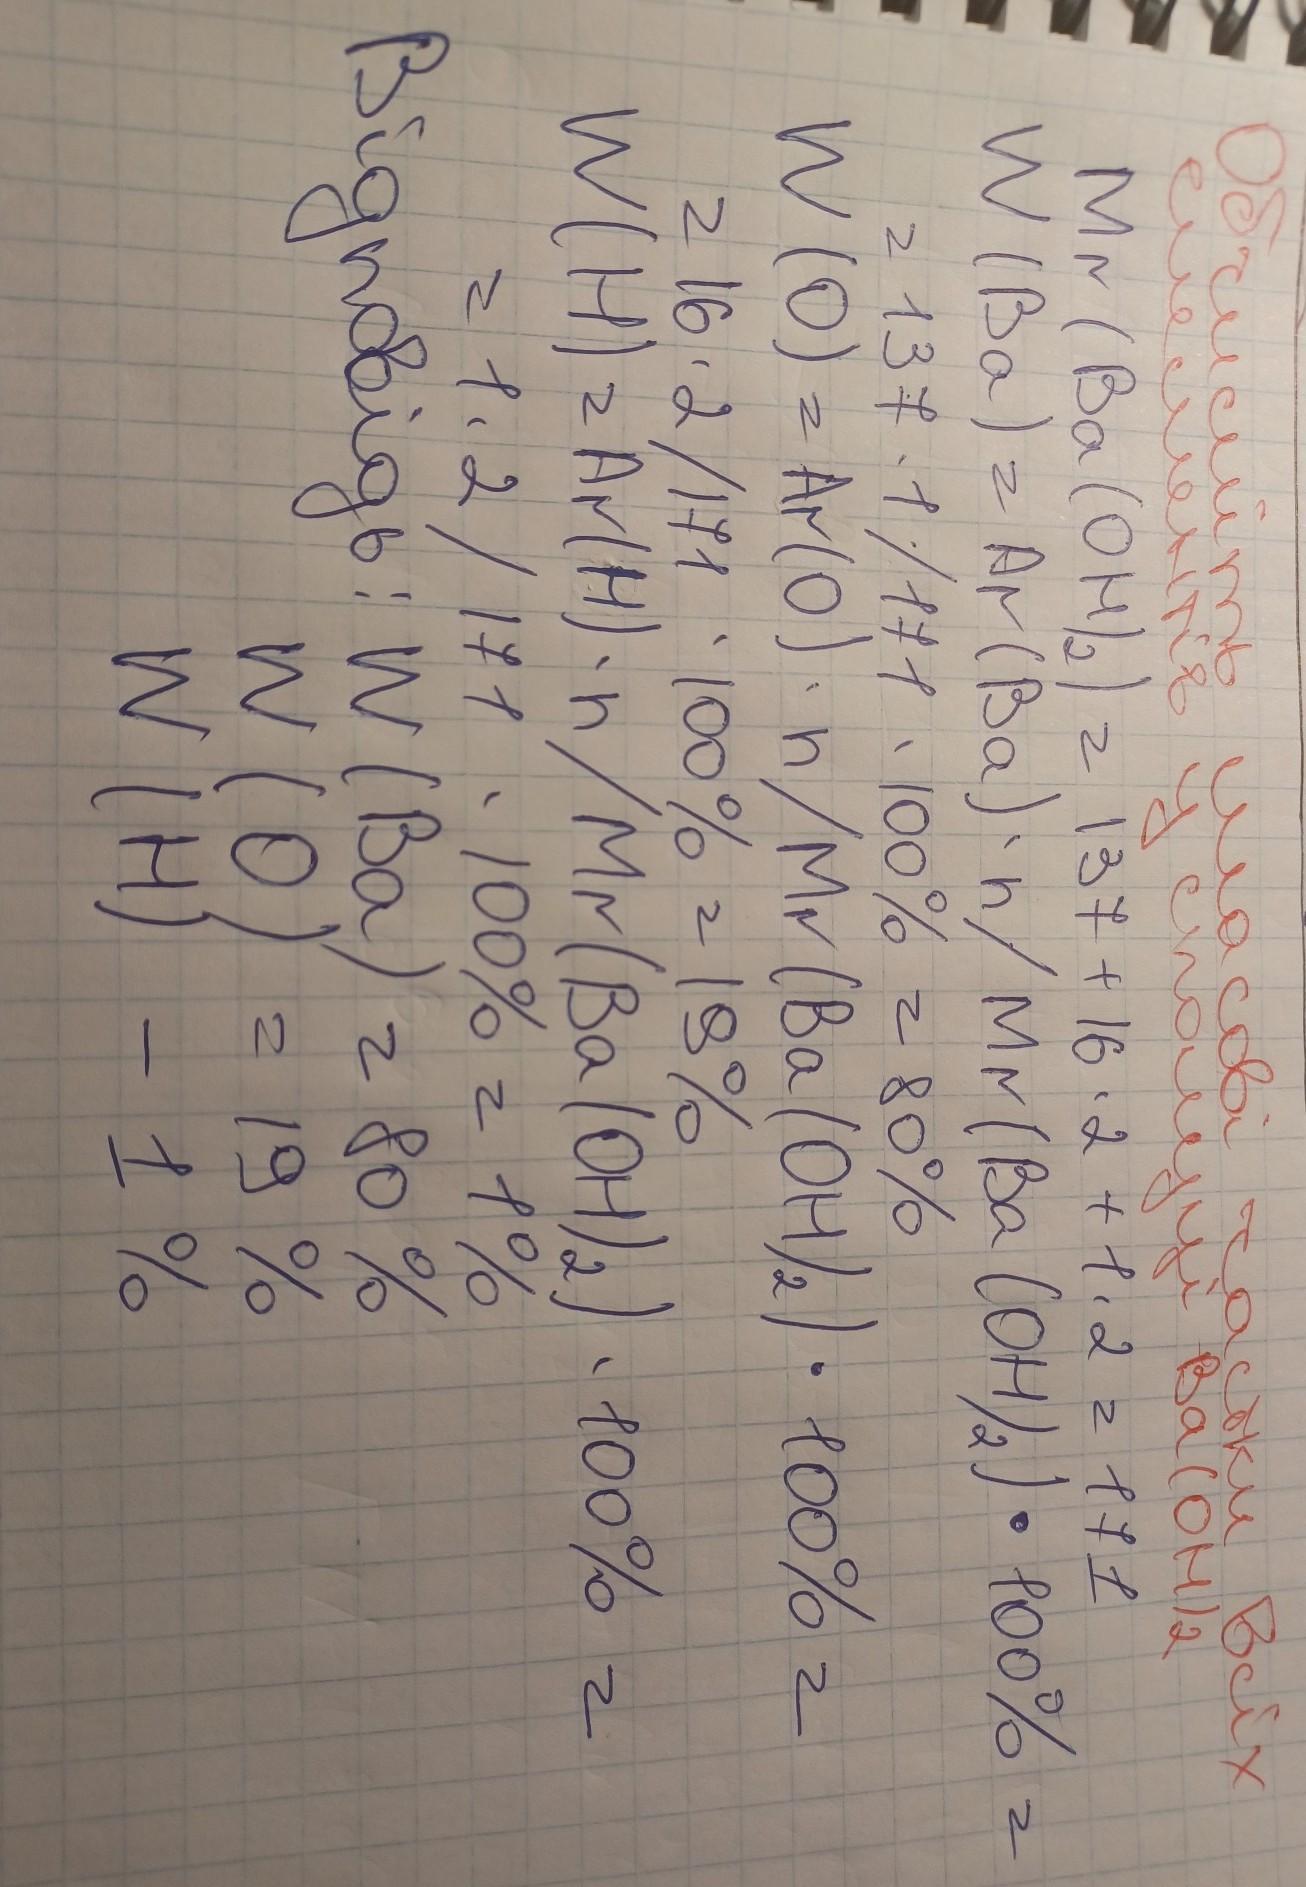 Обчисліть масові частки всіх
елементів у сполуці Ba(OH)2
Mr(Ba(OH)2) = 137 + 16·2 + 1·2 = 171
W(Ba) = Ar(Ba)·n/Mr(Ba(OH)2)·100% =
= 137·1/171·100% = 80%
W(O) = Ar(O)·n/Mr(Ba(OH)2)·100% =
= 16·2/171·100% = 19%
W(H) = Ar(H)·n/Mr(Ba(OH)2)·100% =
= 1·2/171·100% = 1%
Відповідь: W(Ba) = 80%
W(O) = 19%
W(H) - 1%